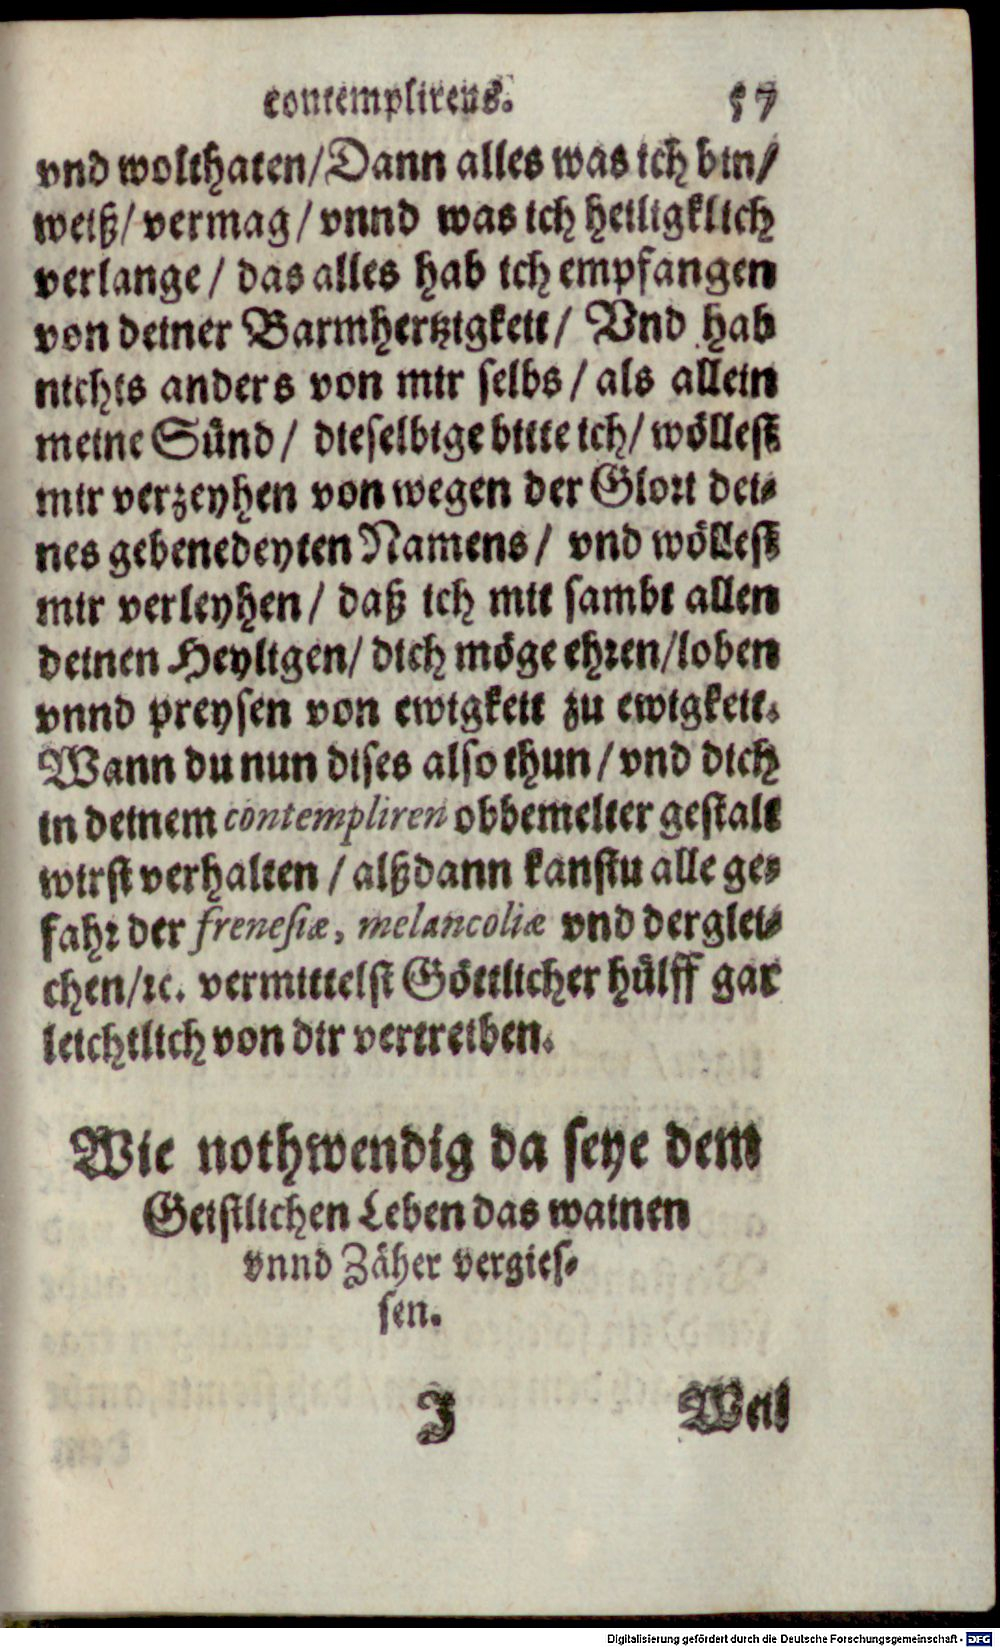 contemplirens. 57
vnd wolthaten/Dann alles was ich bin/
weiß/ vermag/ vnnd was ich heiligklich
verlange/ das alles hab ich empfangen
von deiner Barmhertzigkeit/ Vnd hab
nichts anders von mir selbs/ als allein
meine Sünd/ dieselbige bitte ich/ wöllest
mir verzeyhen von wegen der Glori dei-
nes gebenedeyten Namens/ vnd wöllest
mir verleyhen/ daß ich mit sambt allen
deinen Heyligen/ dich möge ehren/loben
vnnd preysen von ewigkeit zu ewigkeit.
Wann du nun dises also thun/ vnd dich
in deinem contempliren obbemelter gestalt
wirst verhalten/ alßdann kanstu alle ge-
fahr der frenesiæ, melancoliæ vnd derglei-
chen/ꝛc. vermittelst Göttlicher hülff gar
leichtlich von dir vertreiben.
Wie nothwendig da seye dem
Geistlichen Leben das wainen
vnnd Zäher vergies-
sen.
J Weil
Digitalisierung gefördert durch die Deutsche Forschungsgemeinschaft - DFG